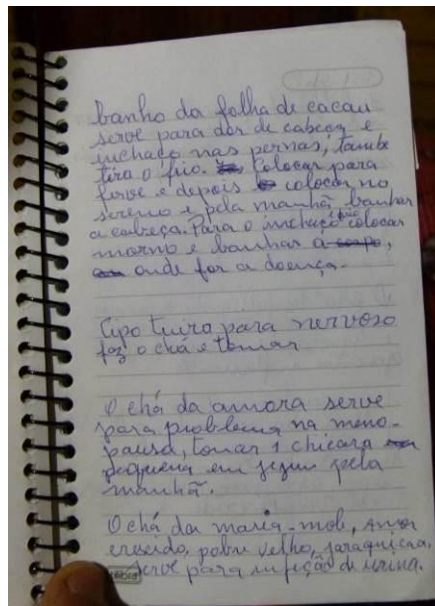 banho da folha de cacau
serve para dor de cabeça e
inchaço nas pernas, tambe
tira o frio. Colocar para
ferve e depois colocar no
sereno e pela manhã banhar
a cabeça. Para o inchaço colocar
morno e banhar a corpo,
onde for a doença.
Cipo tuira para nervoso
faz o chá e tomar
O chá da amora serve
para problema na meno-
pausa, tomar 1 chicara
pequena em jejum pela
manhã.
O chá da maria-mob, amor
crescido, pobre velho,
serve para infeção de urina.